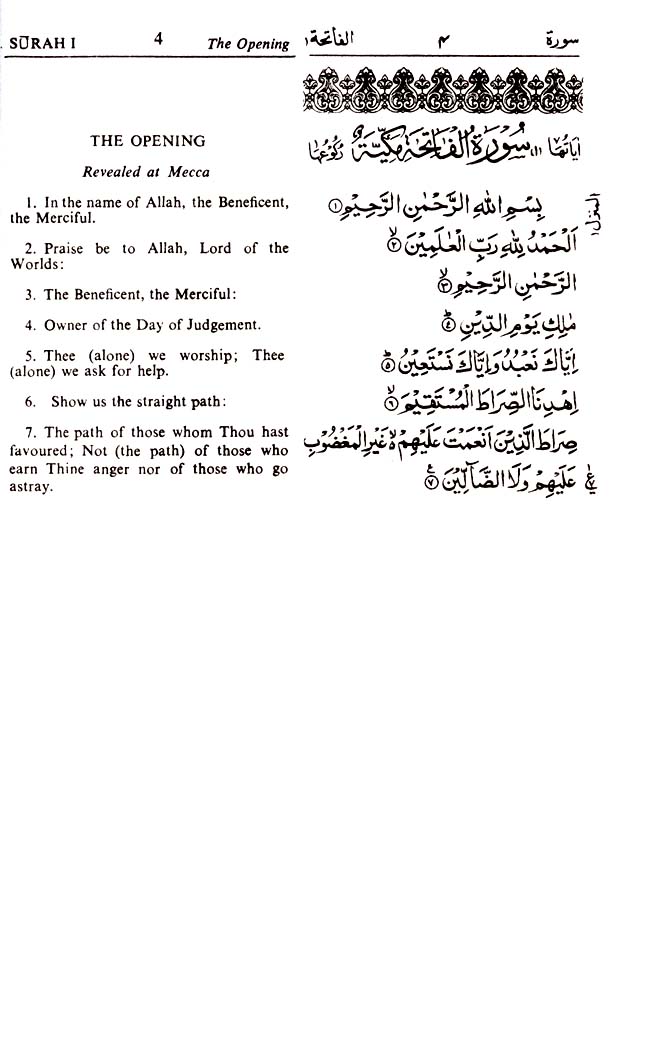 SŪRAH I 4 The Opening
THE OPENING
Revealed at Mecca
1. In the name of Allah, the Beneficent,
the Merciful.
2. Praise be to Allah, Lord of the
Worlds:
3. The Beneficent, the Merciful:
4. Owner of the Day of Judgement.
5. Thee (alone) we worship; Thee
(alone) we ask for help.
6. Show us the straight path:
7. The path of those whom Thou hast
favoured; Not (the path) of those who
earn Thine anger nor of those who go
astray.
سورة ۴ الفاتحة ۱
اٰیَاتُهَا سُوْرَةُ الْفَاتِحَةِ مَكِّیَّةٌ رُكُوْعُهَا
بِسْمِ اللهِ الرَّحْمٰنِ الرَّحِیْمِ ۱
اَلْحَمْدُ لِلّٰهِ رَبِّ الْعٰلَمِیْنَ ۙ ۲
الرَّحْمٰنِ الرَّحِیْمِ ۙ ۳
مٰلِكِ یَوْمِ الدِّیْنِ ؕ ۴
اِیَّاكَ نَعْبُدُ وَاِیَّاكَ نَسْتَعِیْنُ ؕ ۵
اِهْدِنَا الصِّرَاطَ الْمُسْتَقِیْمَ ۙ ۶
صِرَاطَ الَّذِیْنَ اَنْعَمْتَ عَلَیْهِمْ ۙ۬ غَیْرِ الْمَغْضُوْبِ
عَلَیْهِمْ وَلَا الضَّآلِّیْنَ ۷ ع
المنزل ۱